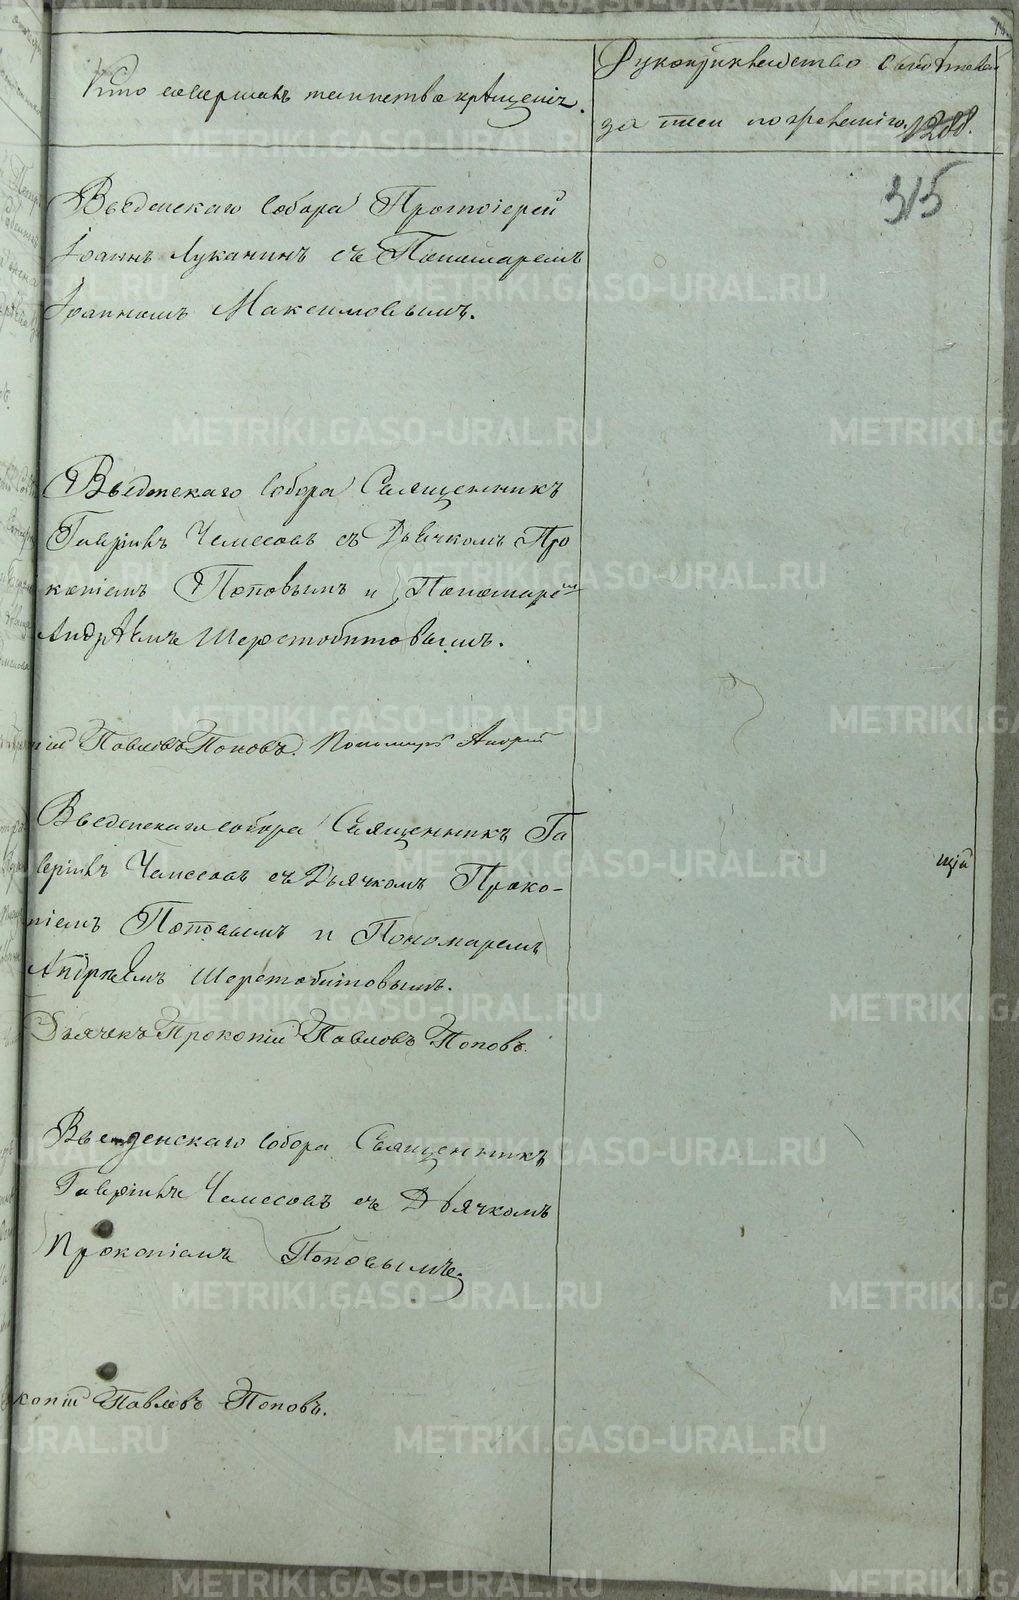 Кто совершалъ таинство крещенія.
Рукоприкладство свидѣтелей
за тѣмъ по прошенію. 1288.
315
Введенскаго Собора Протоіерей
Іоаннъ Луканинъ съ Пономаремъ
Іоанномъ Максимовымъ.
Введенскаго Собора Священникъ
Гавріилъ Чемесовъ съ Дьячкомъ Про
копіемъ Поповымъ и Пономаремъ
Андрѣемъ Шерстобитовымъ.
Павловъ Поповъ. Пономарь Андрей
Введенскаго собора Священникъ Га
вріилъ Чемесовъ съ Дьячкомъ Проко-
піемъ Поповымъ и Пономаремъ
Андрѣемъ Шерстобитовымъ.
Дьячекъ Прокопій Павловъ Поповъ.
Введенскаго Собора Священникъ
Гавріилъ Чемесовъ съ Дьячкомъ
Прокопіемъ Поповымъ.
копій Павловъ Поповъ.
METRIKI.GASO-URAL.RU